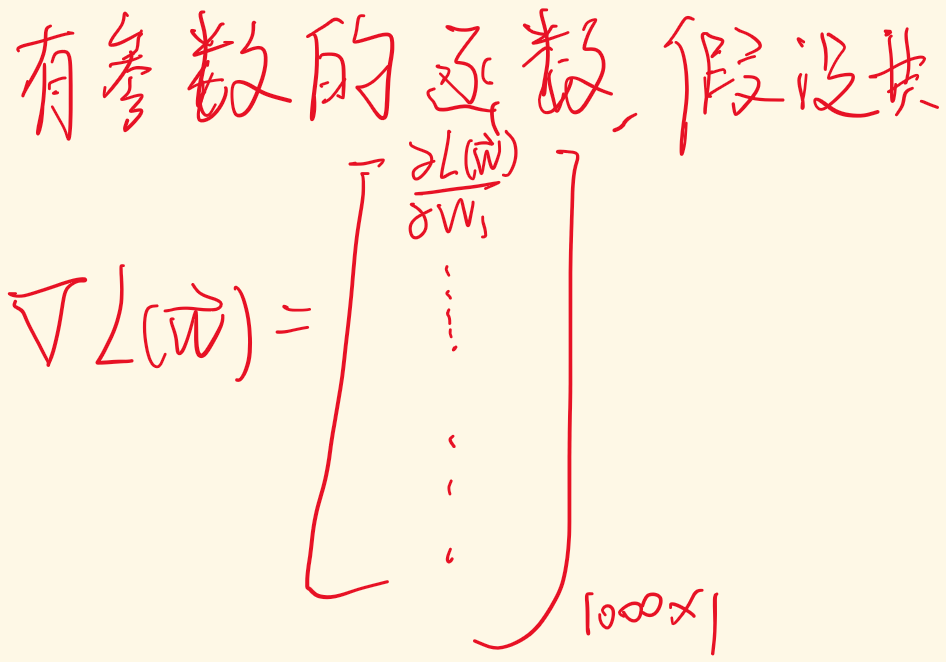 有参数的函数, 假设共
∂L(w⃗)
∂w₁
∇L(w⃗) = [ ⋮ ]
1000×1